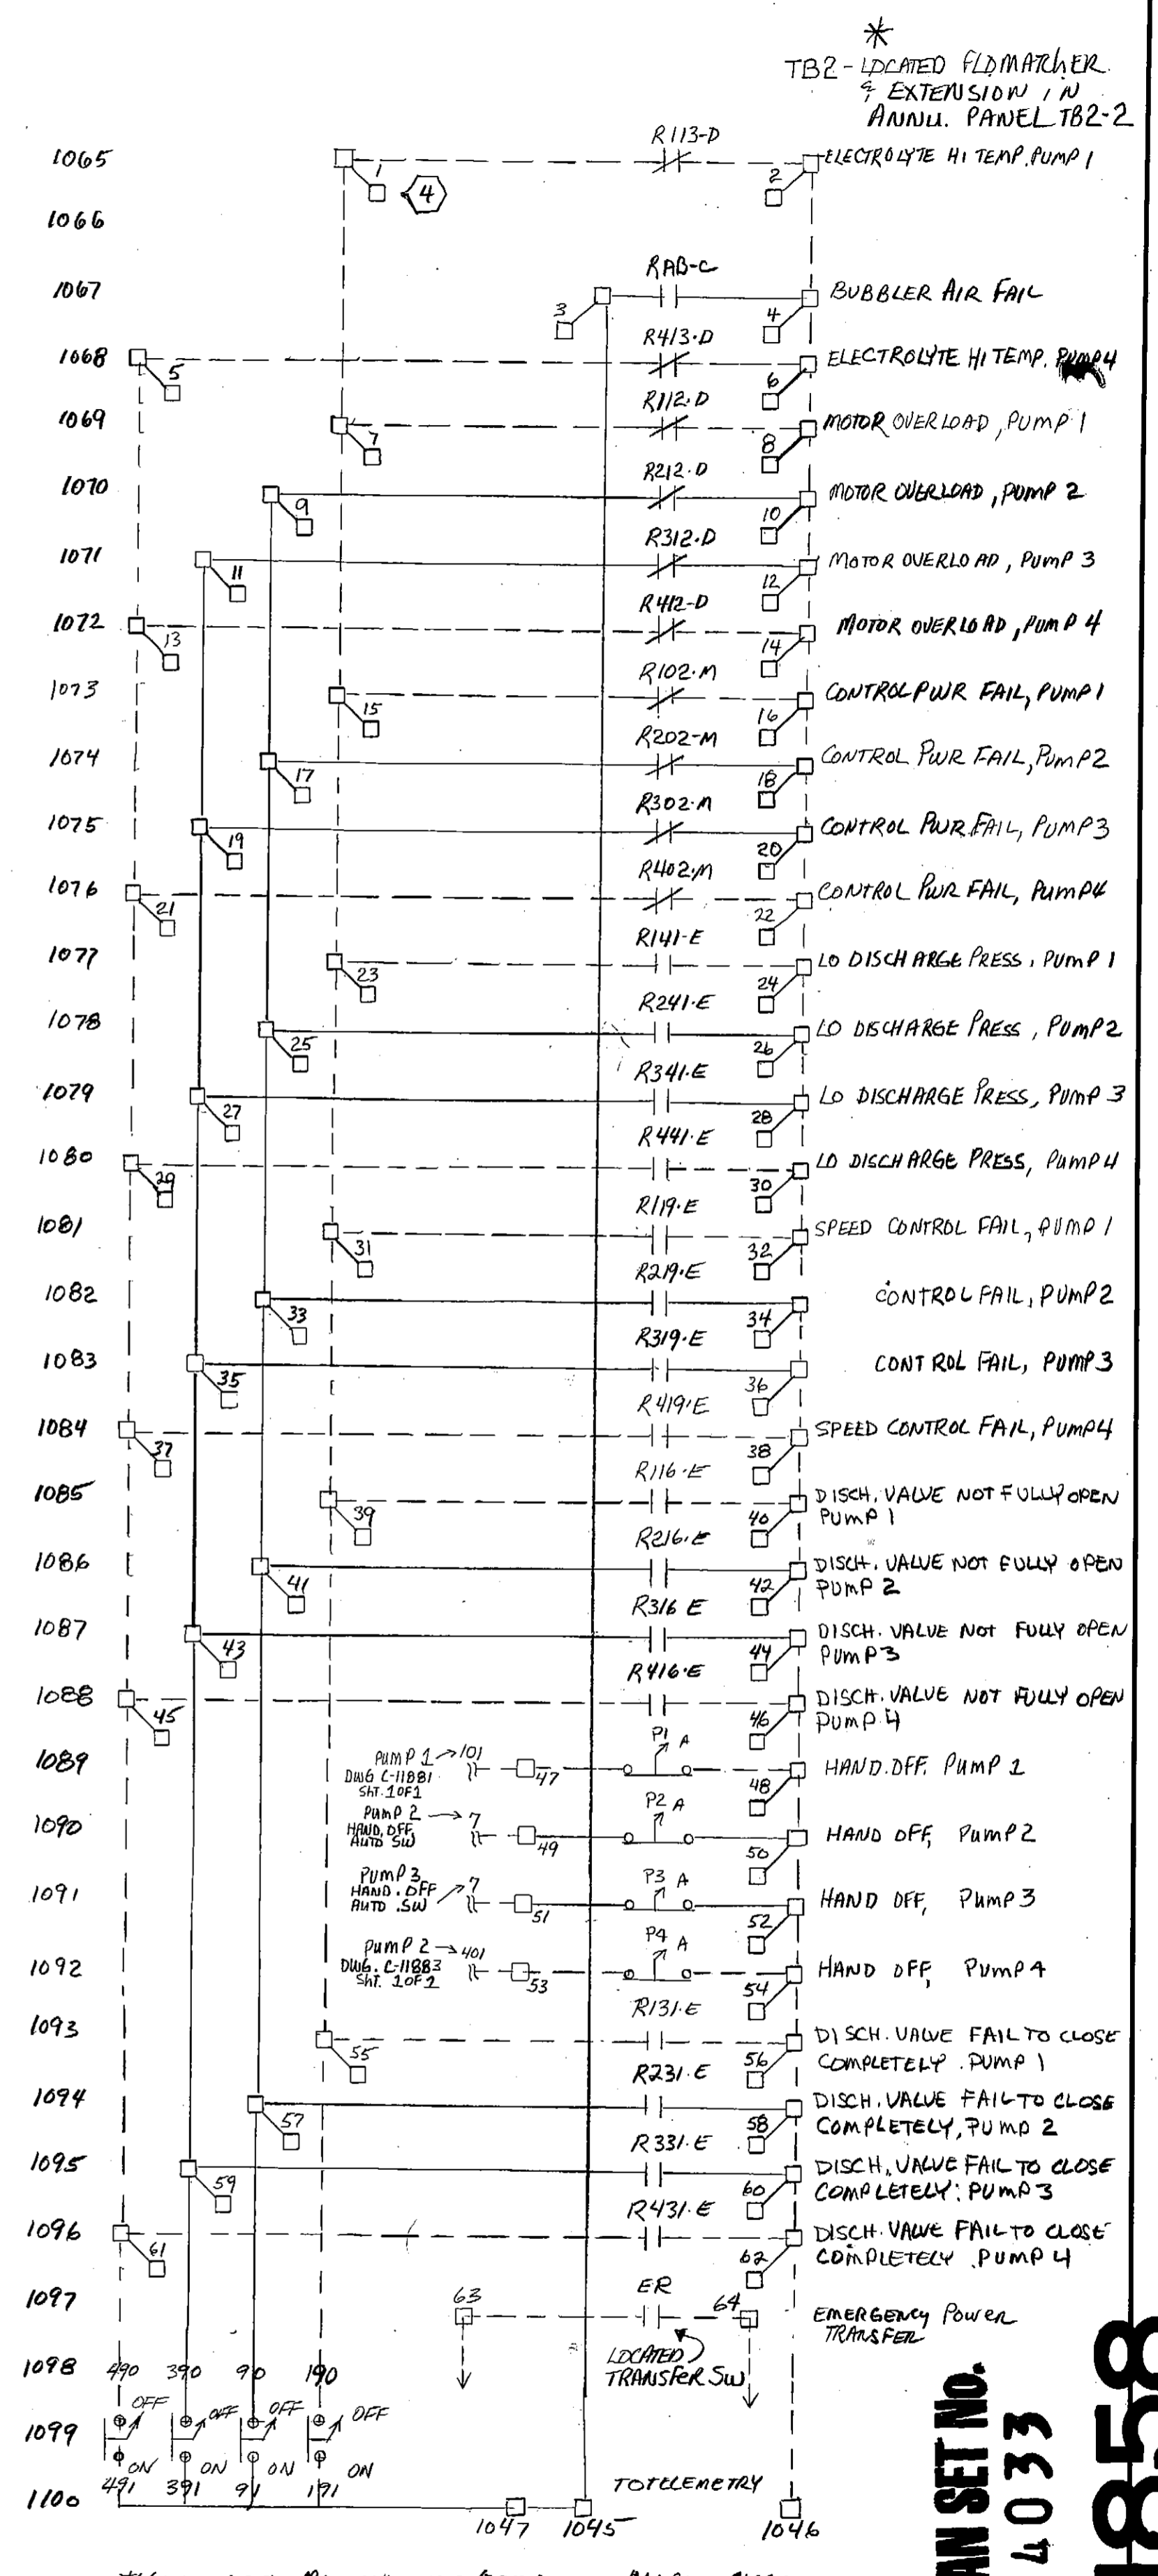 *
TB2 - LOCATED FLOMATCHER
& EXTENSION IN
ANNU. PANEL TB2-2
1065 1 4 R113-D 2 ELECTROLYTE HI TEMP. PUMP 1
1066
1067 3 RAB-C 4 BUBBLER AIR FAIL
1068 5 R413-D 6 ELECTROLYTE HI TEMP. PUMP 4
1069 7 R112-D 8 MOTOR OVERLOAD, PUMP 1
1070 9 R212-D 10 MOTOR OVERLOAD, PUMP 2
1071 11 R312-D 12 MOTOR OVERLOAD, PUMP 3
1072 13 R412-D 14 MOTOR OVERLOAD, PUMP 4
1073 15 R102-M 16 CONTROL PWR FAIL, PUMP 1
1074 17 R202-M 18 CONTROL PWR FAIL, PUMP 2
1075 19 R302-M 20 CONTROL PWR FAIL, PUMP 3
1076 21 R402-M 22 CONTROL PWR FAIL, PUMP 4
1077 23 R141-E 24 LO DISCHARGE PRESS, PUMP 1
1078 25 R241-E 26 LO DISCHARGE PRESS, PUMP 2
1079 27 R341-E 28 LO DISCHARGE PRESS, PUMP 3
1080 29 R441-E 30 LO DISCHARGE PRESS, PUMP 4
1081 31 R119-E 32 SPEED CONTROL FAIL, PUMP 1
1082 33 R219-E 34 CONTROL FAIL, PUMP 2
1083 35 R319-E 36 CONTROL FAIL, PUMP 3
1084 37 R419-E 38 SPEED CONTROL FAIL, PUMP 4
1085 39 R116-E 40 DISCH. VALVE NOT FULLY OPEN
PUMP 1
1086 41 R216-E 42 DISCH. VALVE NOT FULLY OPEN
PUMP 2
1087 43 R316 E 44 DISCH. VALVE NOT FULLY OPEN
PUMP 3
1088 45 R416-E 46 DISCH. VALVE NOT FULLY OPEN
PUMP 4
1089 PUMP 1 → 101 47 P1 A 48 HAND.OFF. PUMP 1
DWG C-11881
SHT. 1 OF 1
1090 PUMP 2 → 7 49 P2 A 50 HAND OFF, PUMP 2
HAND, OFF,
AUTO SW
1091 PUMP 3 7 51 P3 A 52 HAND OFF, PUMP 3
HAND. OFF
AUTO .SW
1092 PUMP 2 → 401 53 P4 A 54 HAND OFF, PUMP 4
DWG. C-11883
SHT. 1 OF 1
1093 55 R131-E 56 DISCH. VALVE FAIL TO CLOSE
COMPLETELY . PUMP 1
1094 57 R231-E 58 DISCH. VALVE FAIL TO CLOSE
COMPLETELY, PUMP 2
1095 59 R331-E 60 DISCH. VALVE FAIL TO CLOSE
COMPLETELY: PUMP 3
1096 61 R431-E 62 DISCH. VALVE FAIL TO CLOSE
COMPLETELY . PUMP 4
1097 63 ER 64 EMERGENCY POWER
TRANSFER
LOCATED
TRANSFER SW
1098 490 390 90 190
OFF OFF OFF OFF
1099
ON ON ON ON
491 391 91 191
1100 TO TELEMETRY
1047 1045 1046
AN SET No.
4033
1858